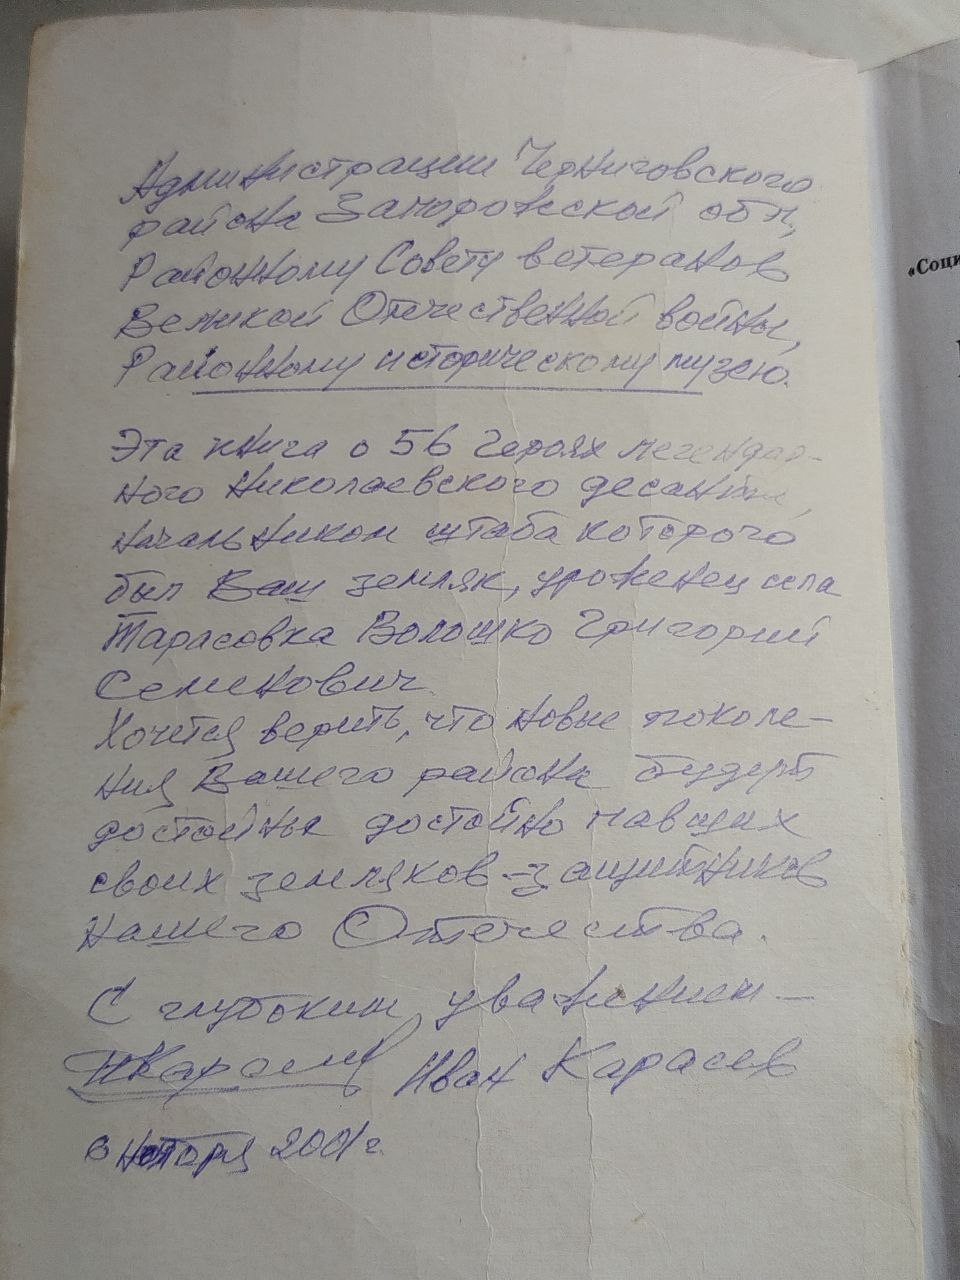 Администрации Черниговского
района Запорожской обл.,
Районному Совету ветеранов
Великой Отечественной войны,
Районному историческому музею.
Эта книга о 56 Героях легендар-
ного Николаевского десанта,
начальником штаба которого
был Ваш земляк, уроженец села
Тарасовка Волошко Григорий
Семенович.
Хочется верить, что новые поколе-
ния Вашего района будут
достойны достойно павших
своих земляков-защитников
нашего Отечества.
С глубоким уважением –
Иван Карасев
ноября 2001 г.
«Соци